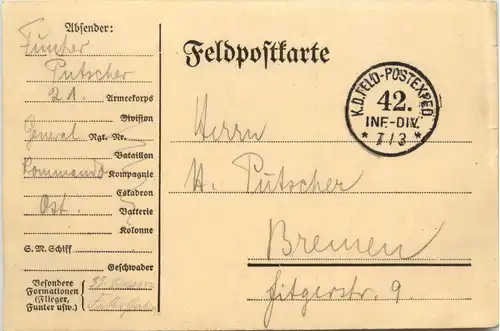 Absender:
Funker
Putscher
21. Armeekorps
Division
General Rgt. Nr.
Bataillon
Kommando Kompagnie
Eskadron
Ost. Batterie
Kolonne
S. M. Schiff
Geschwader
Besondere
Formationen
(Flieger,
Funker usw.)
Feldpostkarte
K.D. FELD-POSTEXPED.
42.
INF-DIV.
* 7/3 *
Herrn
H. Putscher
Bremen
Fitgerstr. 9.